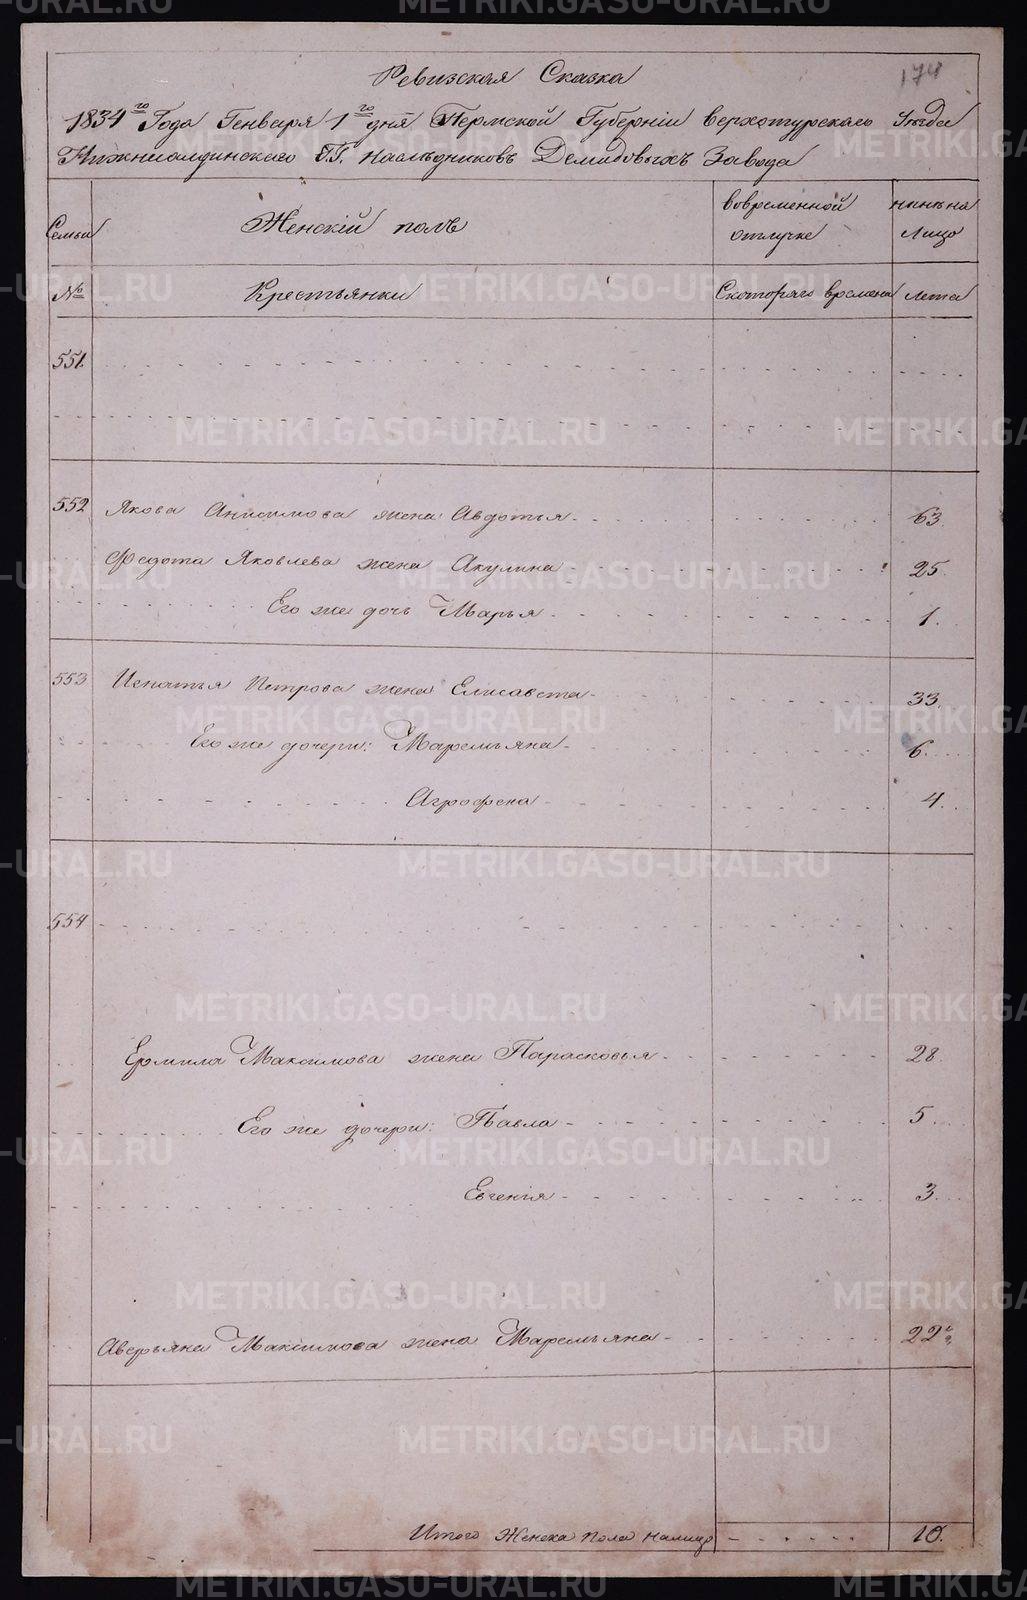 174
Ревизская Сказка
1834го Года Генваря 1го дня Пермской Губерніи Верхотурскаго Уѣзда
Нижнесалдинскаго ГГ. Наслѣдниковъ Демидовыхъ Завода
Семьи
Женскій полъ
вовременной отлучке
нынѣ на Лицо
№
Крестьянки
Скотораго времяни
лета
551.
552 Якова Анисимова жена Авдотья 63.
Федота Яковлева жена Акулина 25.
Его же дочь Марья 1.
553 Игнатья Петрова жена Елисавета 33.
Его же дочери: Маремьяна 6.
Агрофена 4.
554
Ермила Максимова жена Парасковья 28.
Его же дочери: Павла 5
Евгенія 3.
Аверьяна Максимова жена Маремьяна 22
Итого Женска пола налицо 10.
METRIKI.GASO-URAL.RU